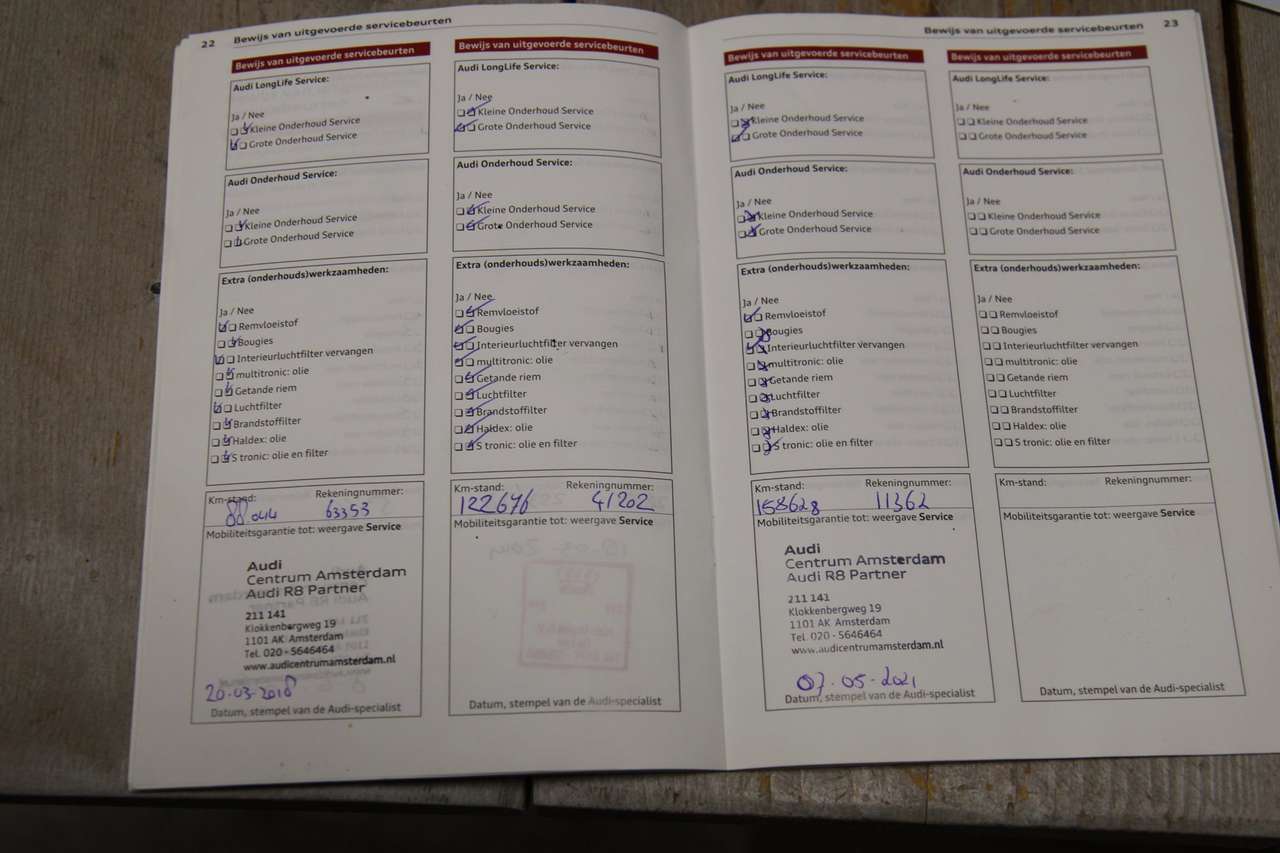 22 Bewijs van uitgevoerde servicebeurten
Bewijs van uitgevoerde servicebeurten
Audi LongLife Service:
Ja / Nee
Kleine Onderhoud Service
Grote Onderhoud Service
Audi Onderhoud Service:
Ja / Nee
Kleine Onderhoud Service
Grote Onderhoud Service
Extra (onderhouds)werkzaamheden:
Ja / Nee
Remvloeistof
Bougies
Interieurluchtfilter vervangen
multitronic: olie
Getande riem
Luchtfilter
Brandstoffilter
Haldex: olie
S tronic: olie en filter
Km-stand: Rekeningnummer:
88.044 63353
Mobiliteitsgarantie tot: weergave Service
Audi
Centrum Amsterdam
Audi R8 Partner
211 141
Klokkenbergweg 19
1101 AK Amsterdam
Tel. 020 - 5646464
www.audicentrumamsterdam.nl
20-03-2018
Datum, stempel van de Audi-specialist
Bewijs van uitgevoerde servicebeurten
Audi LongLife Service:
Ja / Nee
Kleine Onderhoud Service
Grote Onderhoud Service
Audi Onderhoud Service:
Ja / Nee
Kleine Onderhoud Service
Grote Onderhoud Service
Extra (onderhouds)werkzaamheden:
Ja / Nee
Remvloeistof
Bougies
Interieurluchtfilter vervangen
multitronic: olie
Getande riem
Luchtfilter
Brandstoffilter
Haldex: olie
S tronic: olie en filter
Km-stand: Rekeningnummer:
122676 41202
Mobiliteitsgarantie tot: weergave Service
Datum, stempel van de Audi-specialist
Bewijs van uitgevoerde servicebeurten 23
Bewijs van uitgevoerde servicebeurten
Audi LongLife Service:
Ja / Nee
Kleine Onderhoud Service
Grote Onderhoud Service
Audi Onderhoud Service:
Ja / Nee
Kleine Onderhoud Service
Grote Onderhoud Service
Extra (onderhouds)werkzaamheden:
Ja / Nee
Remvloeistof
Bougies
Interieurluchtfilter vervangen
multitronic: olie
Getande riem
Luchtfilter
Brandstoffilter
Haldex: olie
S tronic: olie en filter
Km-stand: Rekeningnummer:
158628 11362
Mobiliteitsgarantie tot: weergave Service
Audi
Centrum Amsterdam
Audi R8 Partner
211 141
Klokkenbergweg 19
1101 AK Amsterdam
Tel. 020 - 5646464
www.audicentrumamsterdam.nl
07-05-2021
Datum, stempel van de Audi-specialist
Bewijs van uitgevoerde servicebeurten
Audi LongLife Service:
Ja / Nee
Kleine Onderhoud Service
Grote Onderhoud Service
Audi Onderhoud Service:
Ja / Nee
Kleine Onderhoud Service
Grote Onderhoud Service
Extra (onderhouds)werkzaamheden:
Ja / Nee
Remvloeistof
Bougies
Interieurluchtfilter vervangen
multitronic: olie
Getande riem
Luchtfilter
Brandstoffilter
Haldex: olie
S tronic: olie en filter
Km-stand: Rekeningnummer:
Mobiliteitsgarantie tot: weergave Service
Datum, stempel van de Audi-specialist